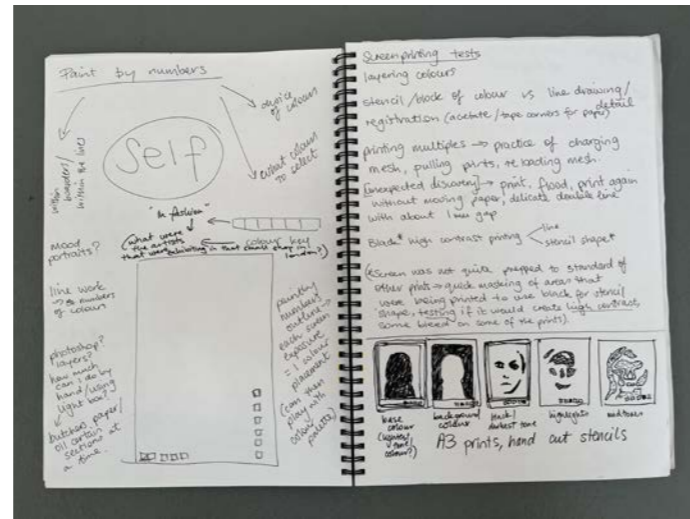 Paint by numbers
choice
of colours
what colour
to select
within
borders/
within the lines
Self
"in fashion"
(what were
the artists
that were exhibiting in that
london?)
colour key
mood
portraits?
line work
→ numbers
of colours
photoshop?
layers?
how much
can I do by
hand/using
light box?
butchers paper/
oil certain
sections at
a time.
painting
numbers
outline →
each screen
exposure
= 1 colour
placement
(can then
play with
colour
palette)
Screenprinting tests
layering colours
stencil/block of colour vs line drawing/
detail
registration (acetate/tape corners for paper)
printing multiples → practice of charging
mesh, pulling prints, reloading mesh.
[unexpected discovery] → print, flood, print again
without moving paper, delicate double line
with about 1mm gap
Black* high contrast printing
line
stencil shape*
(*Screen was not quite prepped to standard of
other prints → quick masking of areas that
were being printed to use black for stencil
shape, testing if it would create high contrast,
some bleed on some of the prints).
base
colour
colour?)
background
colour
black/
darkest tone
highlights
midtones
A3 prints, hand cut stencils